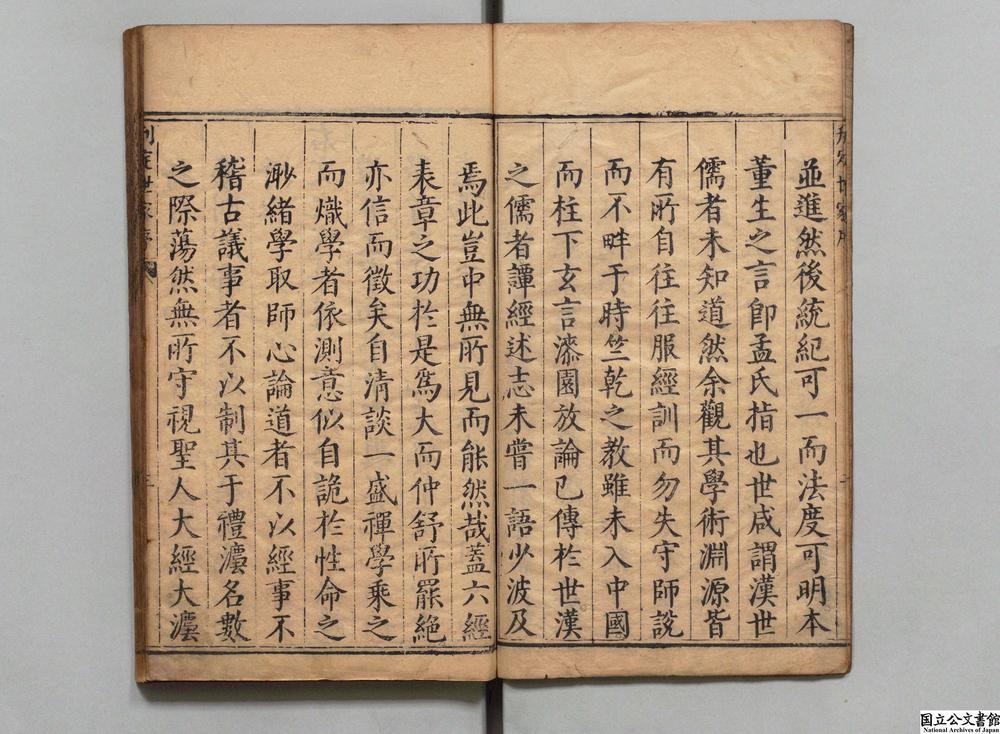 並進然後統紀可一而法度可明本
董生之言卽孟氏指也世咸謂漢世
儒者未知道然余觀其學術淵源皆
有所自往往服經訓而勿失守師說
而不畔于時竺乾之教雖未入中國
而柱下玄言漆園放論已傳於世漢
之儒者譚經述志未嘗一語少波及
焉此豈中無所見而能然哉蓋六經
表章之功於是爲大而仲舒所罷絕
亦信而徵矣自清談一盛禪學乘之
而熾學者依測意似自詭於性命之
渺緒學取師心論道者不以經事不
稽古議事者不以制其于禮灋名數
之際蕩然無所守視聖人大經大灋
国立公文書館
National Archives of Japan